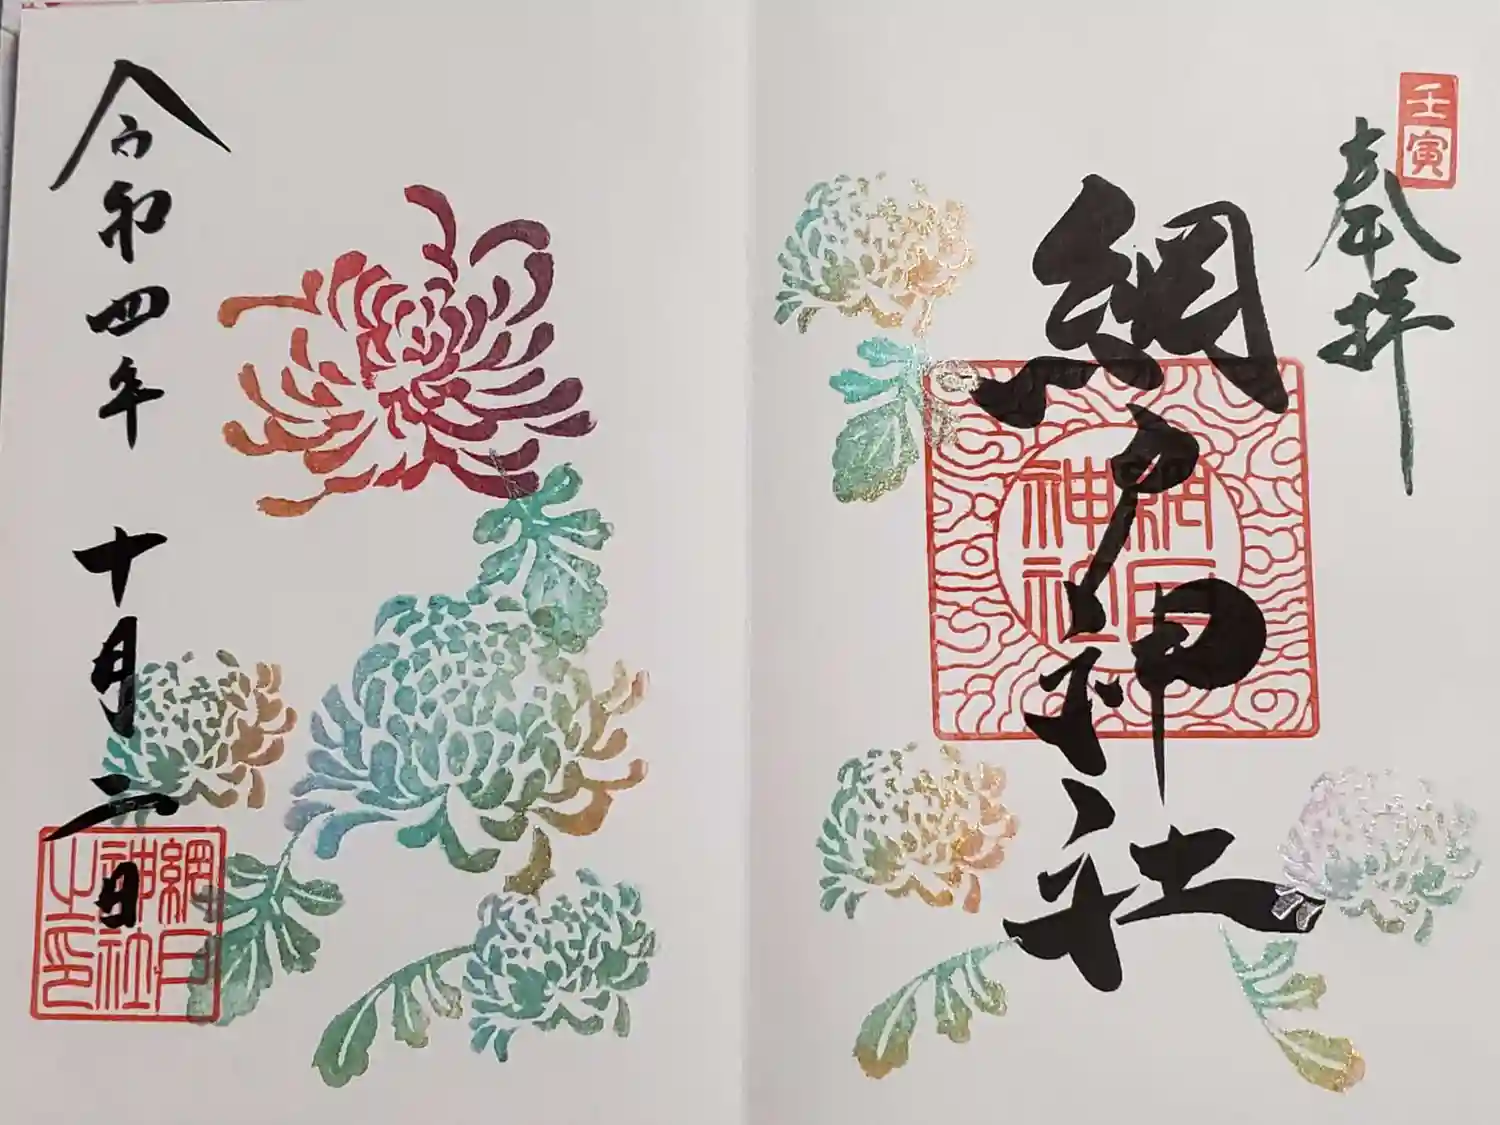 壬寅
奉拝
網戸神社
網戸神社
令和四年十月二日
網戸神社之印